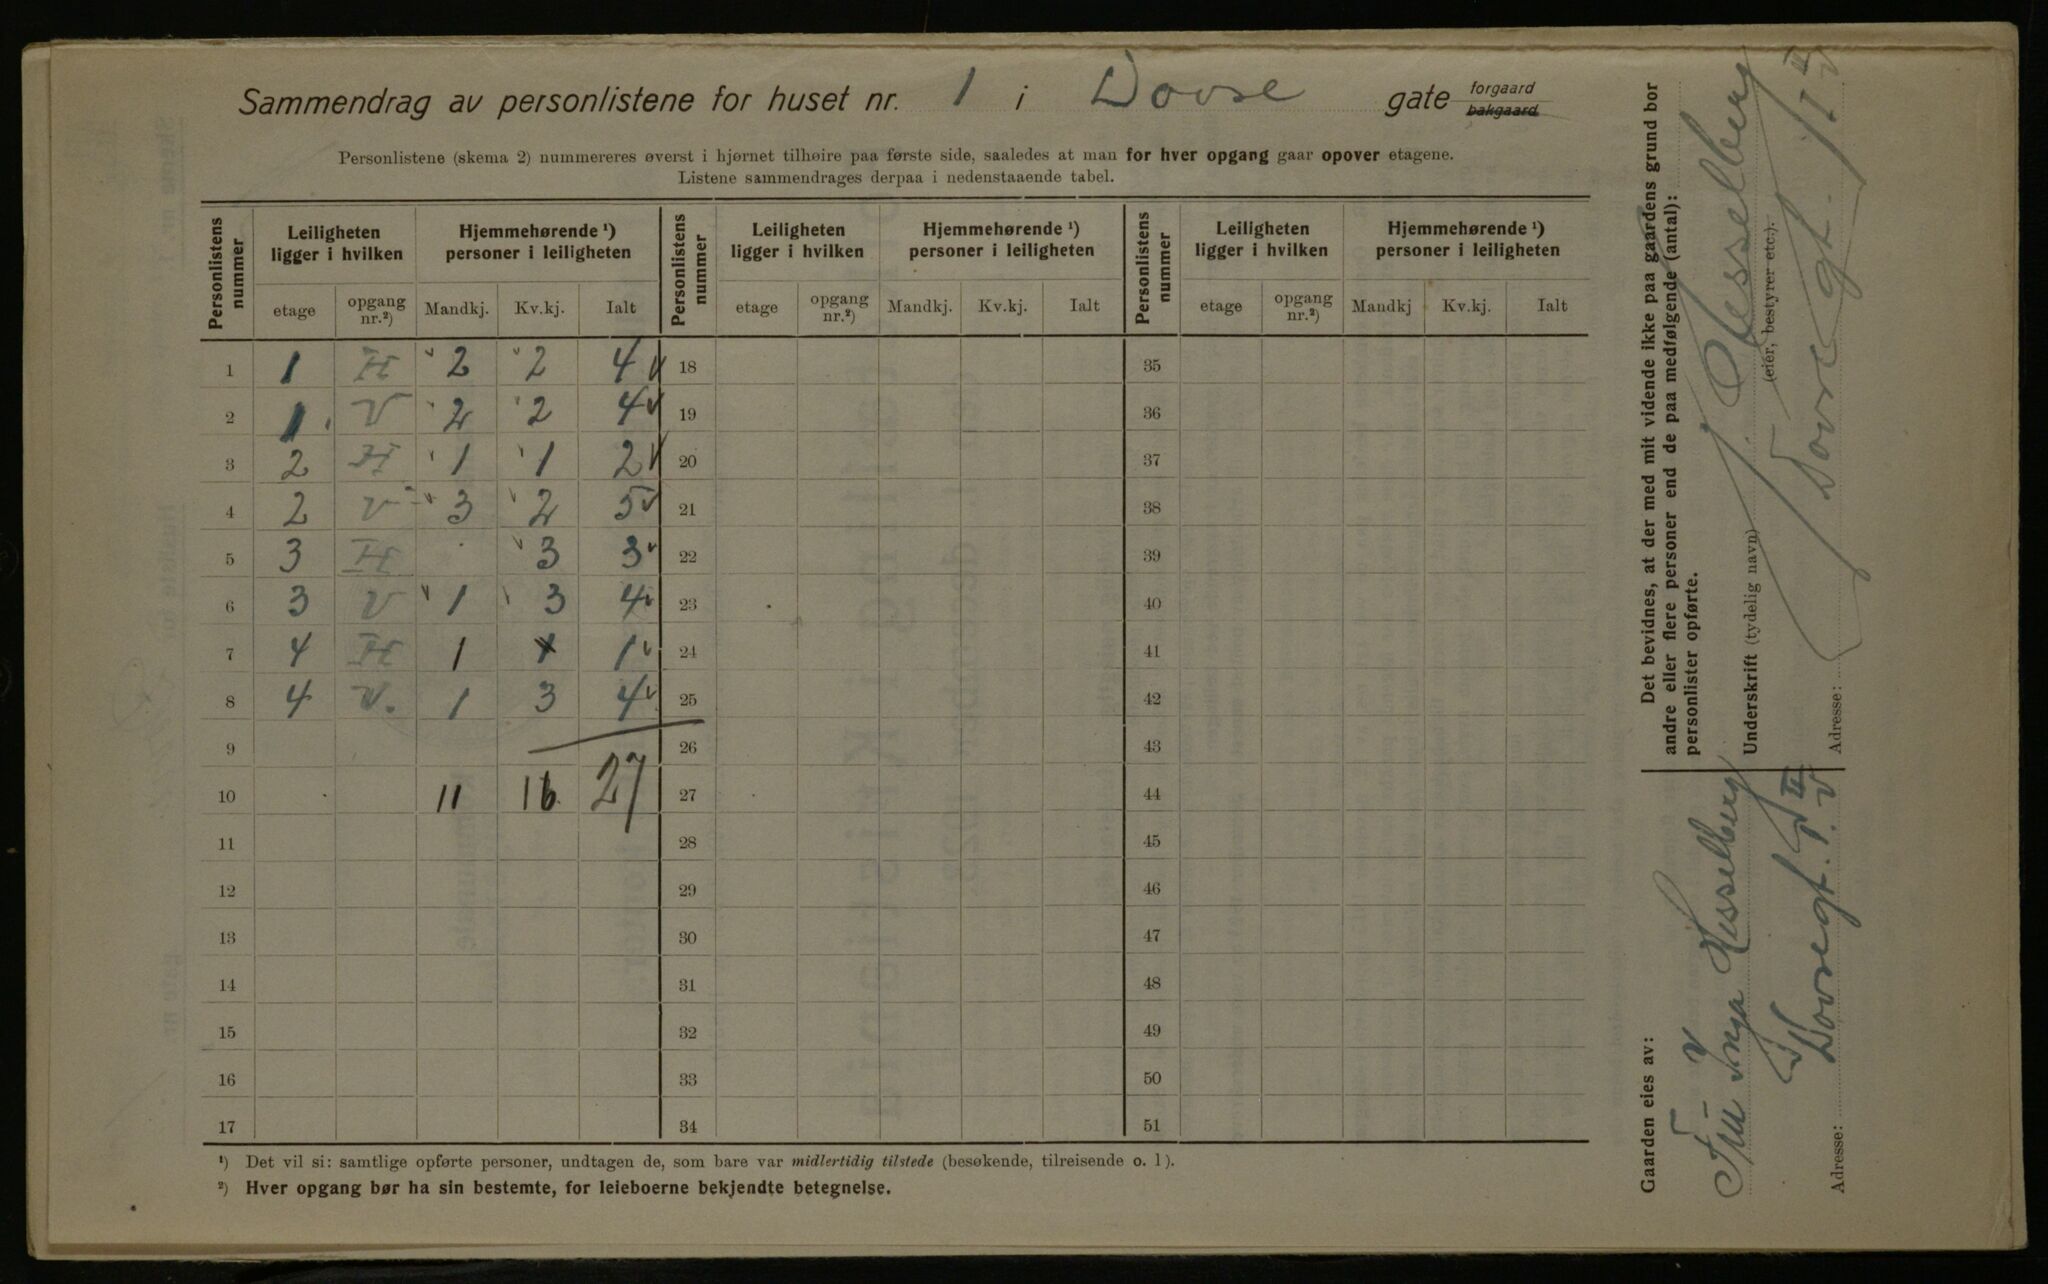 Sammendrag av personlistene for huset nr. 1 i Dovre gate forgaard bakgaard
Personlistene (skema 2) nummereres øverst i hjørnet tilhøire paa første side, saaledes at man for hver opgang gaar opover etagene.
Listene sammendrages derpaa i nedenstaaende tabel.
Personlistens nummer | Leiligheten ligger i hvilken | Hjemmehørende ¹) personer i leiligheten | Personlistens nummer | Leiligheten ligger i hvilken | Hjemmehørende ¹) personer i leiligheten | Personlistens nummer | Leiligheten ligger i hvilken | Hjemmehørende ¹) personer i leiligheten
etage | opgang nr.²) | Mandkj. | Kv.kj. | Ialt | etage | opgang nr.²) | Mandkj. | Kv.kj. | Ialt | etage | opgang nr.²) | Mandkj | Kv.kj. | Ialt
1 | 1 | H | 2 | 2 | 4 | 18 | 35
2 | 1 | V | 2 | 2 | 4 | 19 | 36
3 | 2 | H | 1 | 1 | 2 | 20 | 37
4 | 2 | V | 3 | 2 | 5 | 21 | 38
5 | 3 | H | | 3 | 3 | 22 | 39
6 | 3 | V | 1 | 3 | 4 | 23 | 40
7 | 4 | H | 1 | 1 | 1 | 24 | 41
8 | 4 | V. | 1 | 3 | 4 | 25 | 42
9 | 26 | 43
10 | 11 | 16 | 27 | 27 | 44
11 | 28 | 45
12 | 29 | 46
13 | 30 | 47
14 | 31 | 48
15 | 32 | 49
16 | 33 | 50
17 | 34 | 51
¹) Det vil si: samtlige opførte personer, undtagen de, som bare var midlertidig tilstede (besøkende, tilreisende o. l).
²) Hver opgang bør ha sin bestemte, for leieboerne bekjendte betegnelse.
Det bevidnes, at der med mit vidende ikke paa gaardens grund bor
andre eller flere personer end de paa medfølgende (antal):
personlister opførte.
Underskrift (tydelig navn) J. Hesselberg
(eier, bestyrer etc.).
Adresse: Dovregt. 1 III V
Gaarden eies av:
Fru Inga Hesselberg
Adresse: Dovregt. 1 III V